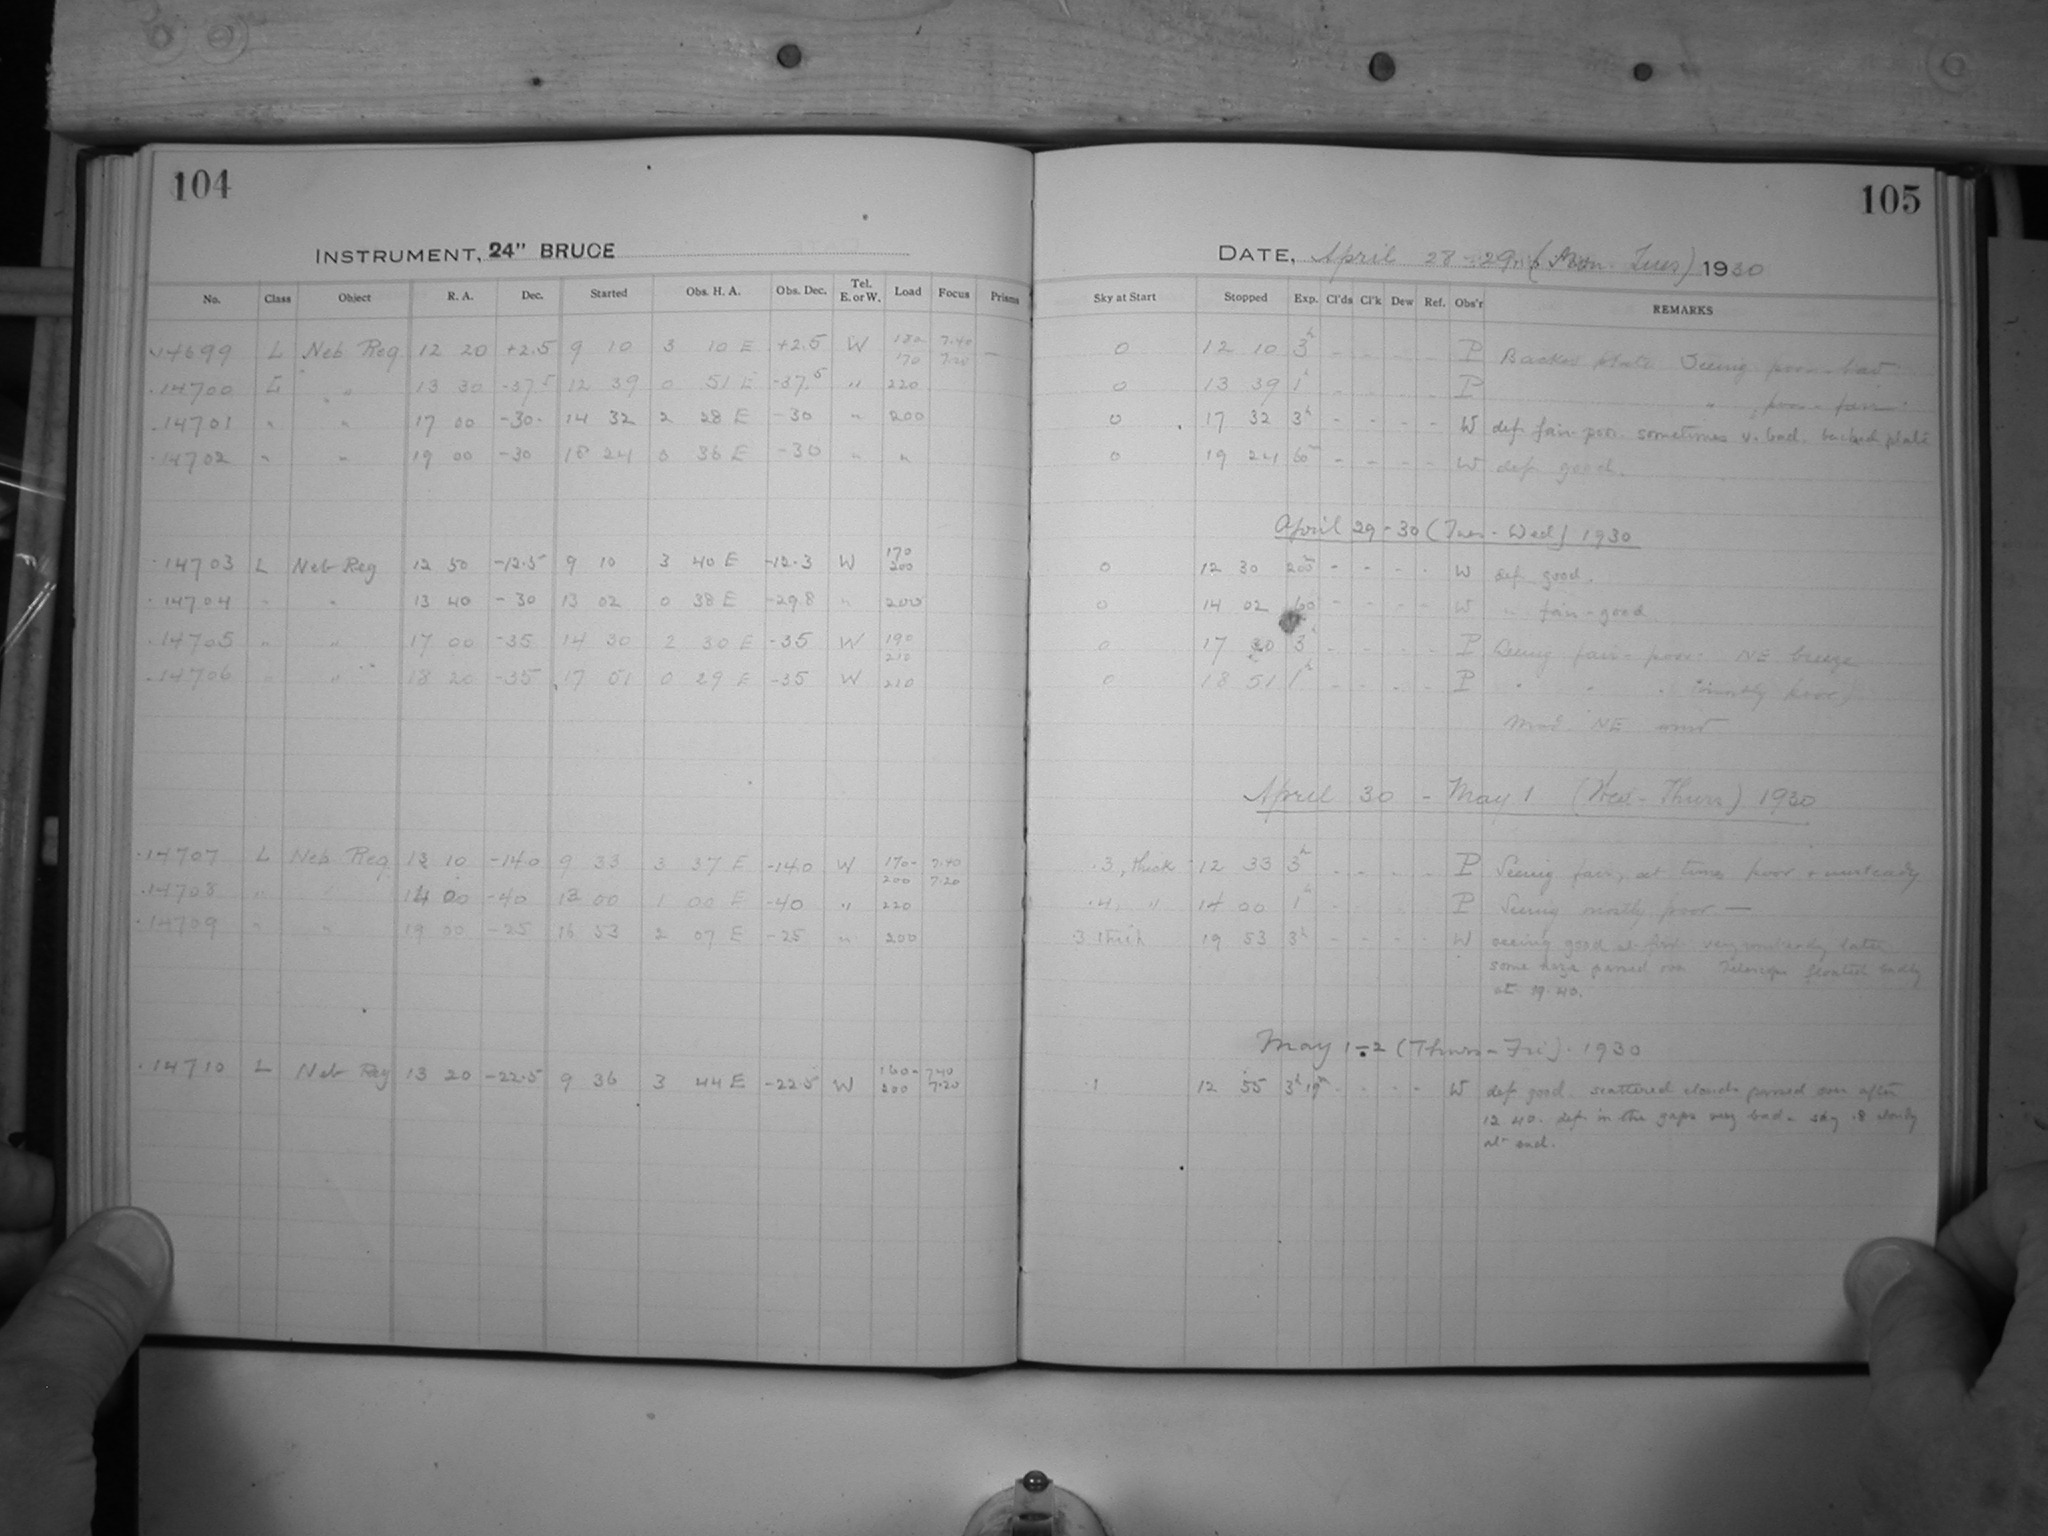 104
INSTRUMENT, 24" BRUCE
No. Class Object R. A. Dec. Started Obs. H. A. Obs. Dec. Tel. E. or W. Load Focus Prisms
14699 L Neb Reg 12 20 +2.5 9 10 3 10 E +2.5 W 180 170 7.40 7.20 —
14700 L " " 13 30 -37.5 12 39 0 51 E -37.5 " 220
14701 " " 17 00 -30 14 32 2 28 E -30 " 200
14702 " " 19 00 -30 18 24 0 36 E -30 " "
14703 L Neb Reg 12 50 -12.5 9 10 3 40 E -12.3 W 170 200
14704 " " 13 40 -30 13 02 0 38 E -29.8 " 200
14705 " " 17 00 -35 14 30 2 30 E -35 W 190 210
14706 " " 18 20 -35 17 51 0 29 E -35 W 220
14707 L Neb Reg 13 10 -14.0 9 33 3 37 E -14.0 W 170- 200 7.40 7.20
14708 " " 14 00 -40 13 00 1 00 E -40 " 220
14709 " " 19 00 -25 16 53 2 07 E -25 " 200
14710 L Neb Reg 13 20 -22.5 9 36 3 44 E -22.5 W 160- 200 7.40 7.20
105
DATE, April 28-29 (Mon-Tues) 1930
Sky at Start Stopped Exp. Cl'ds Cl'k Dew Ref. Obs'r REMARKS
0 12 10 3h - - - - P Backed plate Seeing poor-bad
0 13 39 1h - - - - P " poor-fair
0 17 32 3h - - - - W def. fair-poor sometimes v. bad. backed plate
0 19 24 60m - - - - W def good.
April 29-30 (Tues-Wed) 1930
0 12 30 200m - - - - W def good.
0 14 02 60 - - - - W " fair-good
0 17 30 3h - - - - P Seeing fair-poor. NE breeze
0 18 51 1h - - - - P " " " (mostly poor)
Mod. NE wind
April 30 - May 1 (Wed-Thurs) 1930
.3, thick 12 33 3h - - - - P Seeing fair, at times poor + unsteady
.4, " 14 00 1h - - - - P Seeing mostly poor —
3 thick 19 53 3h - - - - W seeing good at first very unsteady later
some haze passed over Telescope floated badly
at 19.40.
May 1-2 (Thurs-Fri). 1930
.1 12 55 3h 19m - - - - W def good. scattered clouds passed over after
12 40. def in the gaps very bad - sky .8 cloudy
at end.